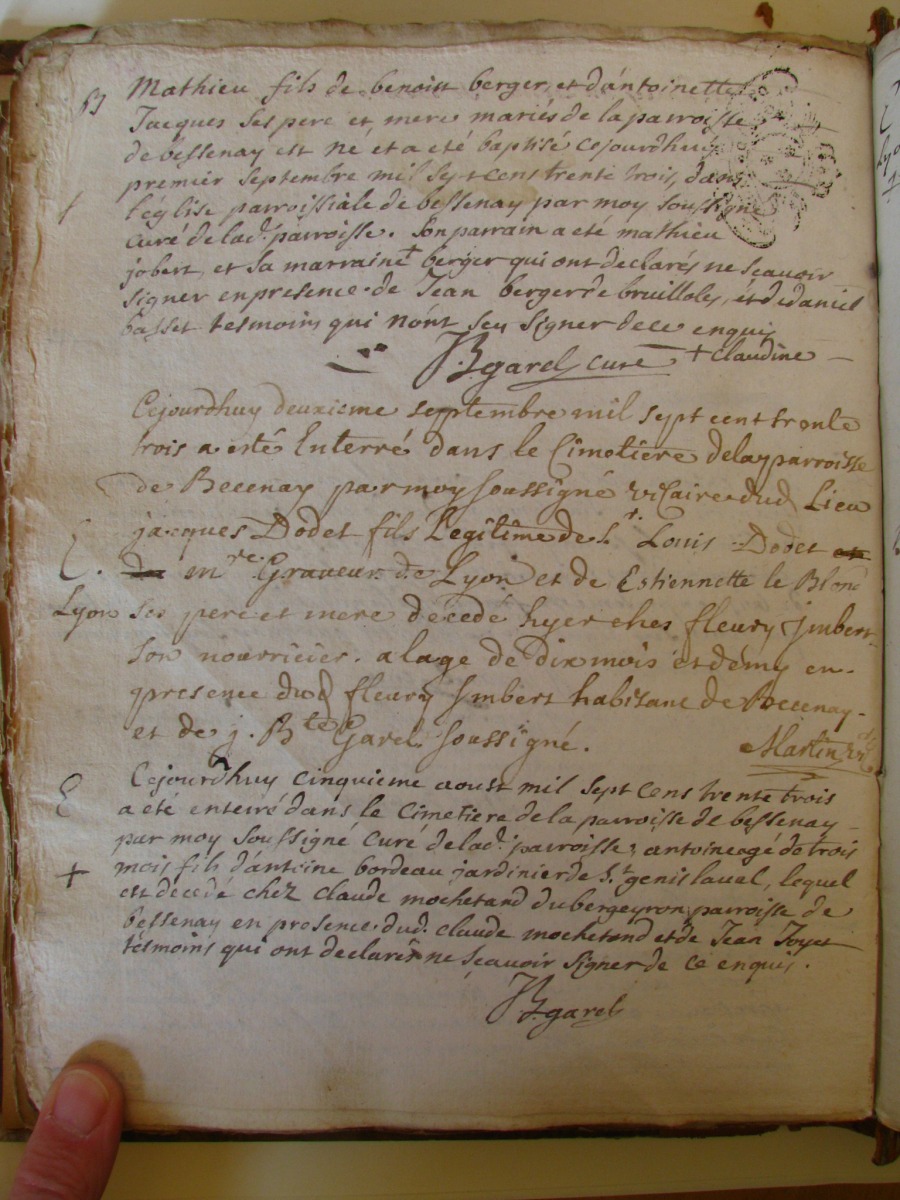 B
Mathieu fils de benoitt berger, et d'antoinette
Jacques ses pere et mere mariés de la parroisse
de bessenay est né et a été baptisé cejourdhuy
premier septembre mil sept cens trente trois, dans
l'église parroissiale de bessenay par moy soussigné
curé de lad. parroisse. son parrain a été mathieu
jobert, et sa marraine + berger qui ont declarés ne scavoir
signer en presence de Jean berger de brulloles, et de daniel
basset tesmoins qui n'ont sceu signer de ce enquis
JBgarel curé + Claudine
Cejourdhuy deuxieme septembre mil sept cent trente
trois a esté Enterré dans le Cimetiere de la parroisse
de Becenay par moy soussigné vicaire dud Lieu
jacques Dodet fils Legitime de Sr. Louis Dodet
E.
mre. Graveur de Lyon et de Estiennette le Blond
Lyon
ses pere et mere décédé hyer ches fleury Jmbert
son nourricier. a lage de dix mois et démy en
presence dud fleury Jmbert habitant de Becenay
et de j. Bte Garel soussigné. Martin vic
E
Cejourdhuy cinquieme aoust mil sept cens trente trois
a été enterré dans le cimetiere de la parroisse de bessenay
par moy soussigné curé de lad. parroisse, antoine agé de trois
+
mois fils d'antoine bordeau jardinier de St. genis laval, lequel
est décédé chez claude mochetand du bergeyron parroisse de
bessenay en presence dud. claude mochetand et de Jean Joyet
tésmoins qui ont declarés ne scavoir signer de ce enquis.
JBgarel